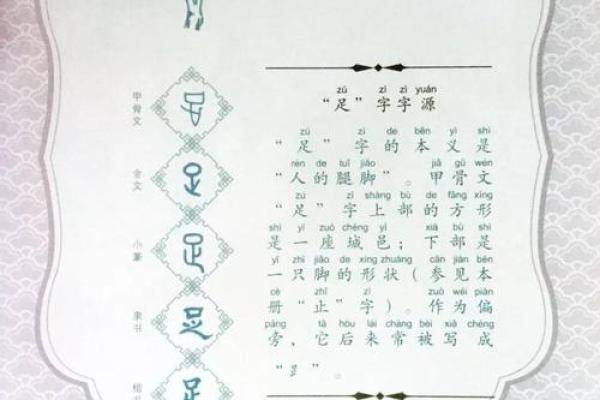 甲骨文
金文
小篆
隶书
足
足
足
zú zì zì yuán
“足”字字源
zú zì de běn yì shì
“足”字的本义是
rén de tuǐ jiǎo jiǎ gǔ wén
“人的腿脚”。甲骨文
zú zì shàng bù de fāng xíng
“足”字上部的方形
shì yí zuò chéng yì xià bù shì
是一座城邑；下部是
yì zhī jiǎo de xíng zhuàng cān jiàn běn
一只脚的形状（参见本
cè zhǐ zì zuò wéi piān
册“止”字）。作为偏
páng tā hòu lái cháng bèi xiě chéng
旁，它后来常被写成
“⻊”。